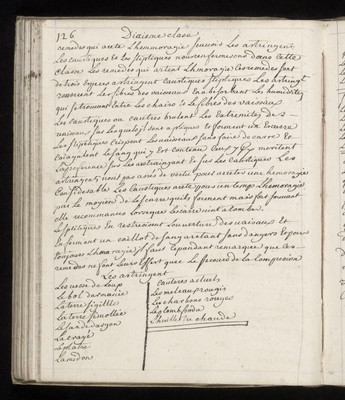 126 Dixiesme classe
remedes qui arete Lhemoragie
Les caustiques et les stiptiques nous renfermerons dans cette
classe Les remedes qui artent Lhmoragie Ces remedes sont
de trois especes astringent Caustiques stiptiques Les astringt
reserrent les fibres des vaisseaux En absorbant Les humidités
qui se trouvent entre Les chairs et les fibres des vaisseaux
Les Caustiques ou cauteres brulent Les Extremités des
vaisseaux sur Les quels ils sont apliqués et forment un Escarre
Les stiptiques Crispent Les vaisseaux sans faire de
Coagulent le sang qui y Est contenu
Les astringents et sur Les Caustiques Les
astringents nont pas assés de vertu pour arreter une hemoragie
Considerable Les Caustiques arete pour un temps Lhemoragie
par le moyen de Lescarre quils forment mais fort souvent
elle recommance lorsque Lescarre vient a tomber
Les stiptiques En restressissant Louverture des vaisseaux et
formant un caillot de sang aretant sans dangers Et pour
toujours Lhmoragie il faut cependant remarquer que ces
remedes ne font leurs Effets que le secours de la Compression
Les astringents
Les vesse de Loup
Le bol darmenie
La terre sigillée
La terre
Le sang de dragon
La craye
Le platre
Lamidon
Cauteres actuels
Les meteaux rougis
Les charbons rouges
Le plomb fondu
Lhuille chaude